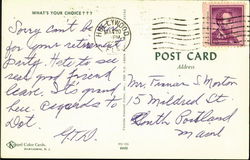 WHAT'S YOUR CHOICE???
Sorry can't be
for your retirement
party. Hate to see
real good friend
leave. It's grand
here. Regards to
Dot.
HOLLYWOOD
POST CARD
Address
Mr. Francis S Morton
15 Mildred St.
South Portland
Maine
Color Cards